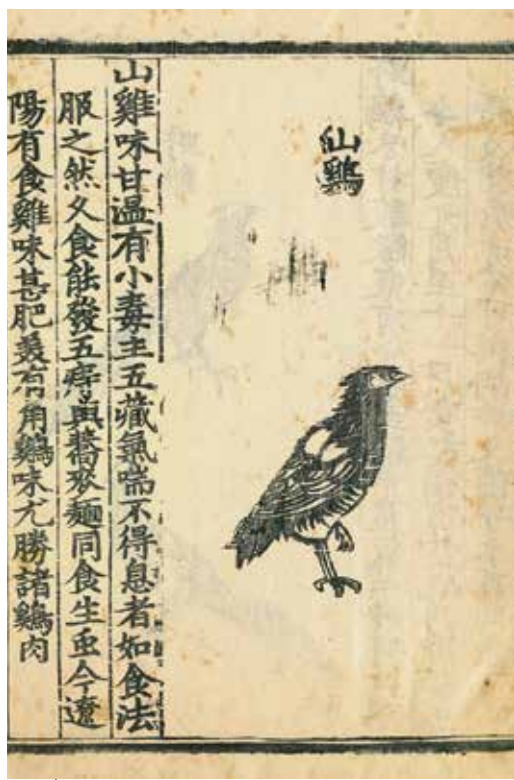 仙鷄
山雞味甘温有小毒主五藏氣喘不得息者如食法
服之然久食能發五痔與蕎麥麵同食生虫今遼
陽有食雞味甚肥美有角鷄味尤勝諸鷄肉